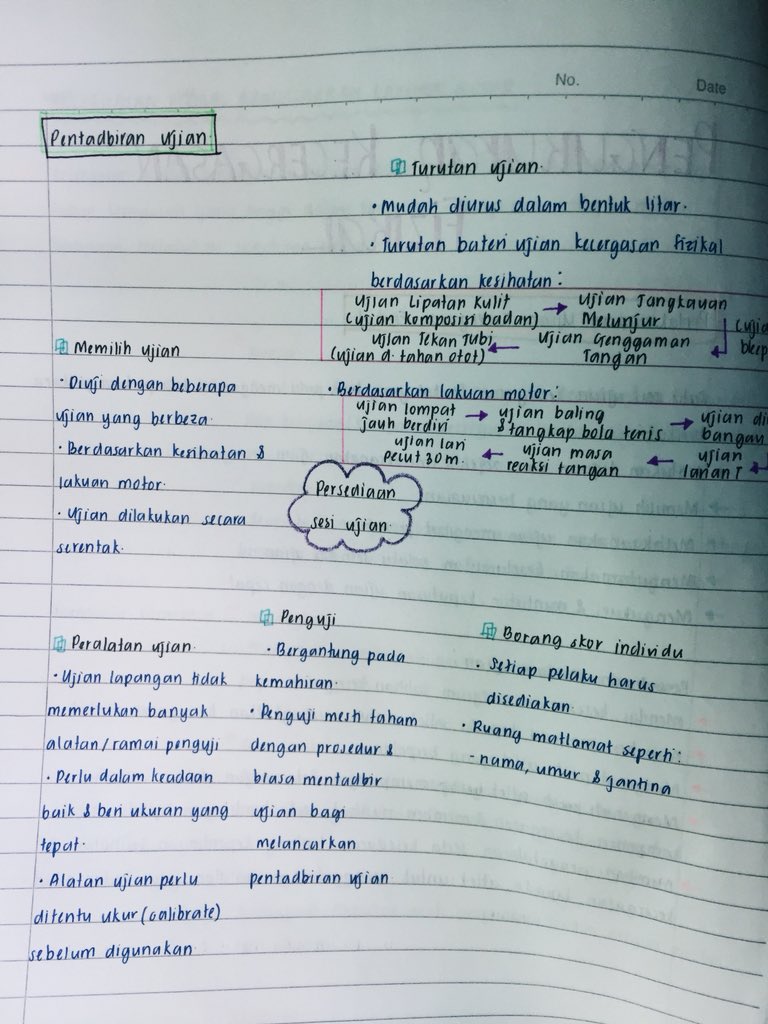 No.
Date
Pentadbiran ujian
Turutan ujian.
• Mudah diurus dalam bentuk litar.
• Turutan bateri ujian kecergasan fizikal
berdasarkan kesihatan:
Ujian Lipatan Kulit → Ujian Jangkauan
(ujian komposisi badan) Melunjur
ujian Tekan Tubi ← Ujian Genggaman
(ujian d. tahan otot) Tangan
• Berdasarkan lakuan motor:
ujian lompat → ujian baling → ujian
jauh berdiri & tangkap bola tenis
ujian lari ← ujian masa ← ujian
pecut 30m. reaksi tangan larian T
Memilih ujian
• Diuji dengan beberapa
ujian yang berbeza.
• Berdasarkan kesihatan &
lakuan motor.
• Ujian dilakukan secara
serentak.
Persediaan
sesi ujian.
Peralatan ujian.
• Ujian lapangan tidak
memerlukan banyak
alatan/ramai penguji
• Perlu dalam keadaan
baik & beri ukuran yang
tepat.
• Alatan ujian perlu
ditentu ukur (calibrate)
sebelum digunakan.
Penguji
• Bergantung pada
kemahiran.
• Penguji mesti faham
dengan prosedur &
biasa mentadbir
ujian bagi
melancarkan
pentadbiran ujian.
Borang skor individu
• Setiap pelaku harus
disediakan.
• Ruang matlamat seperti:
- nama, umur & jantina